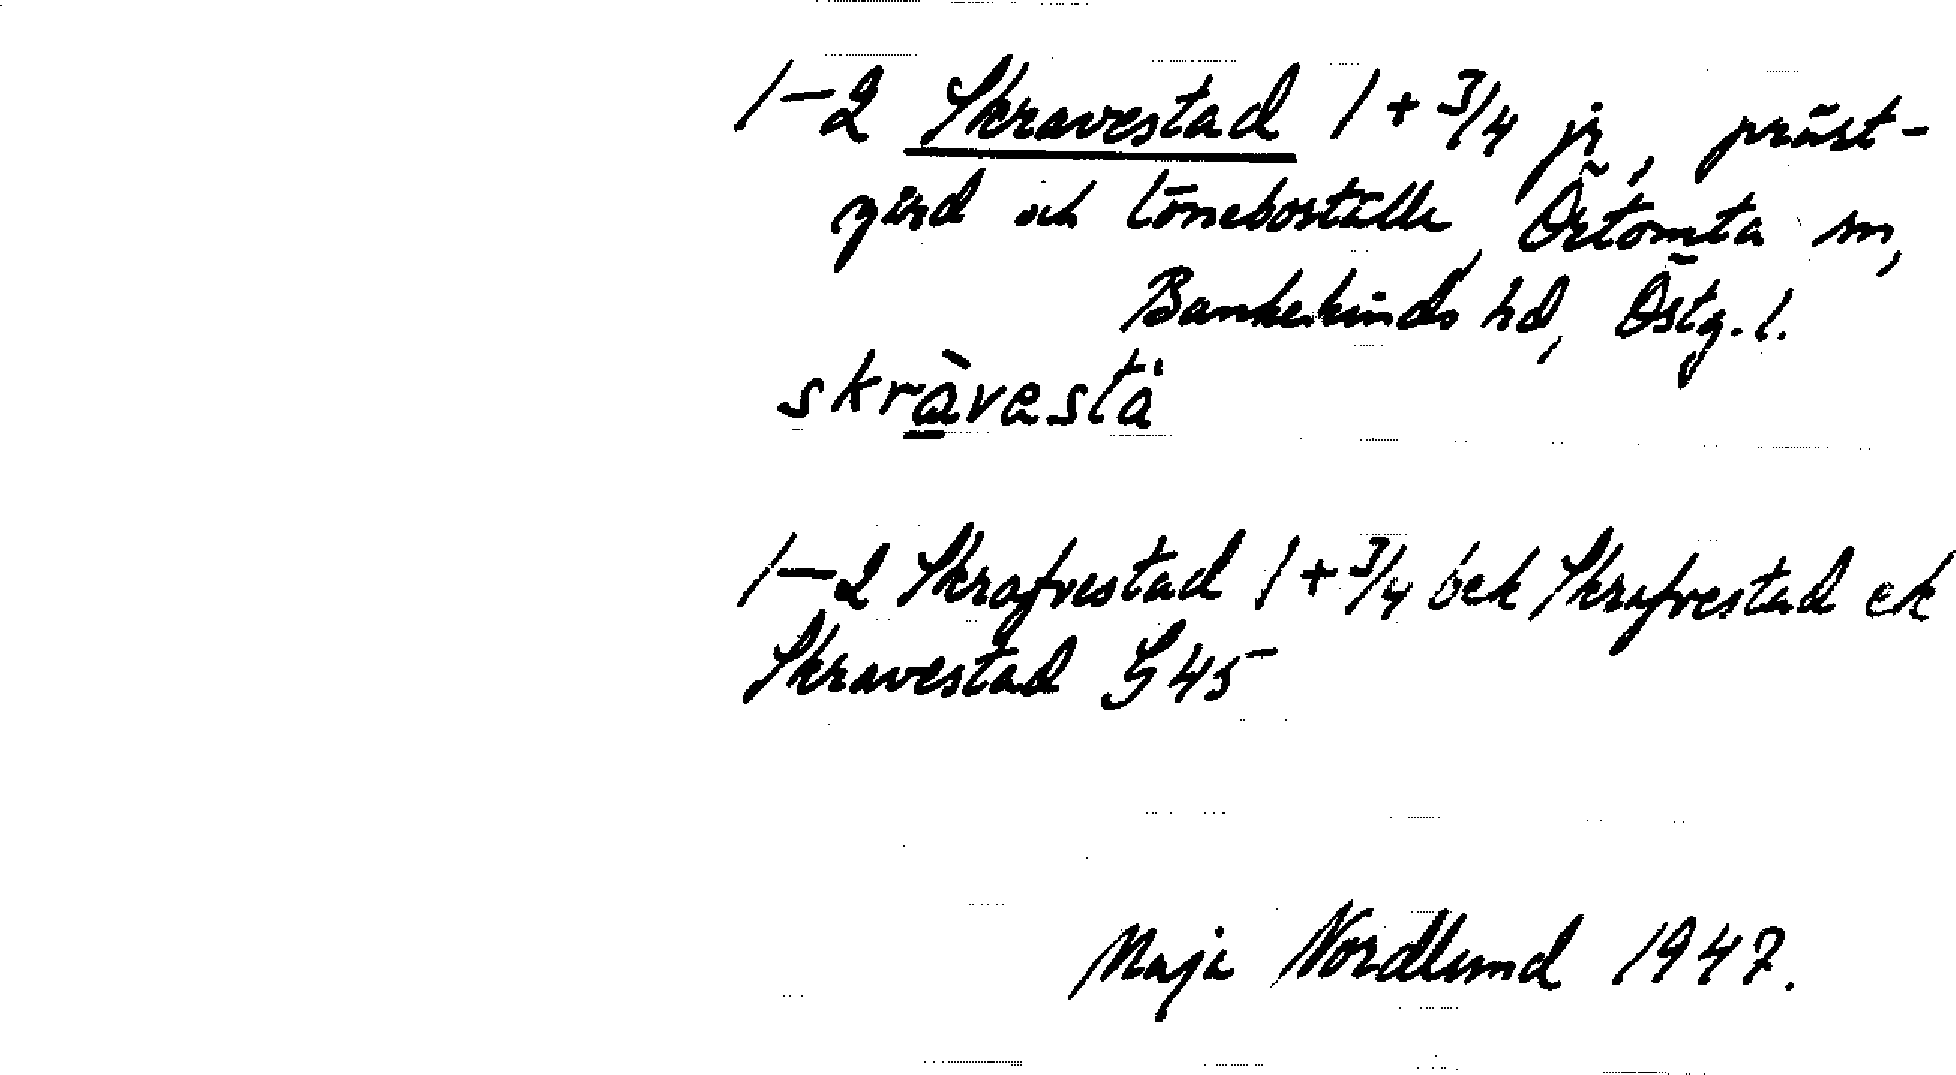 1–2 Skravestad 1 + 3/4 jr, präst-
gård och löneboställe, Örtomta sn,
Bankekinds hd, Östg. l.
skràvestä
1–2 Skrafvestad 1 + 3/4 bek Skrafvestad ek
Skravestad G 45
Maja Nordlund 1947.